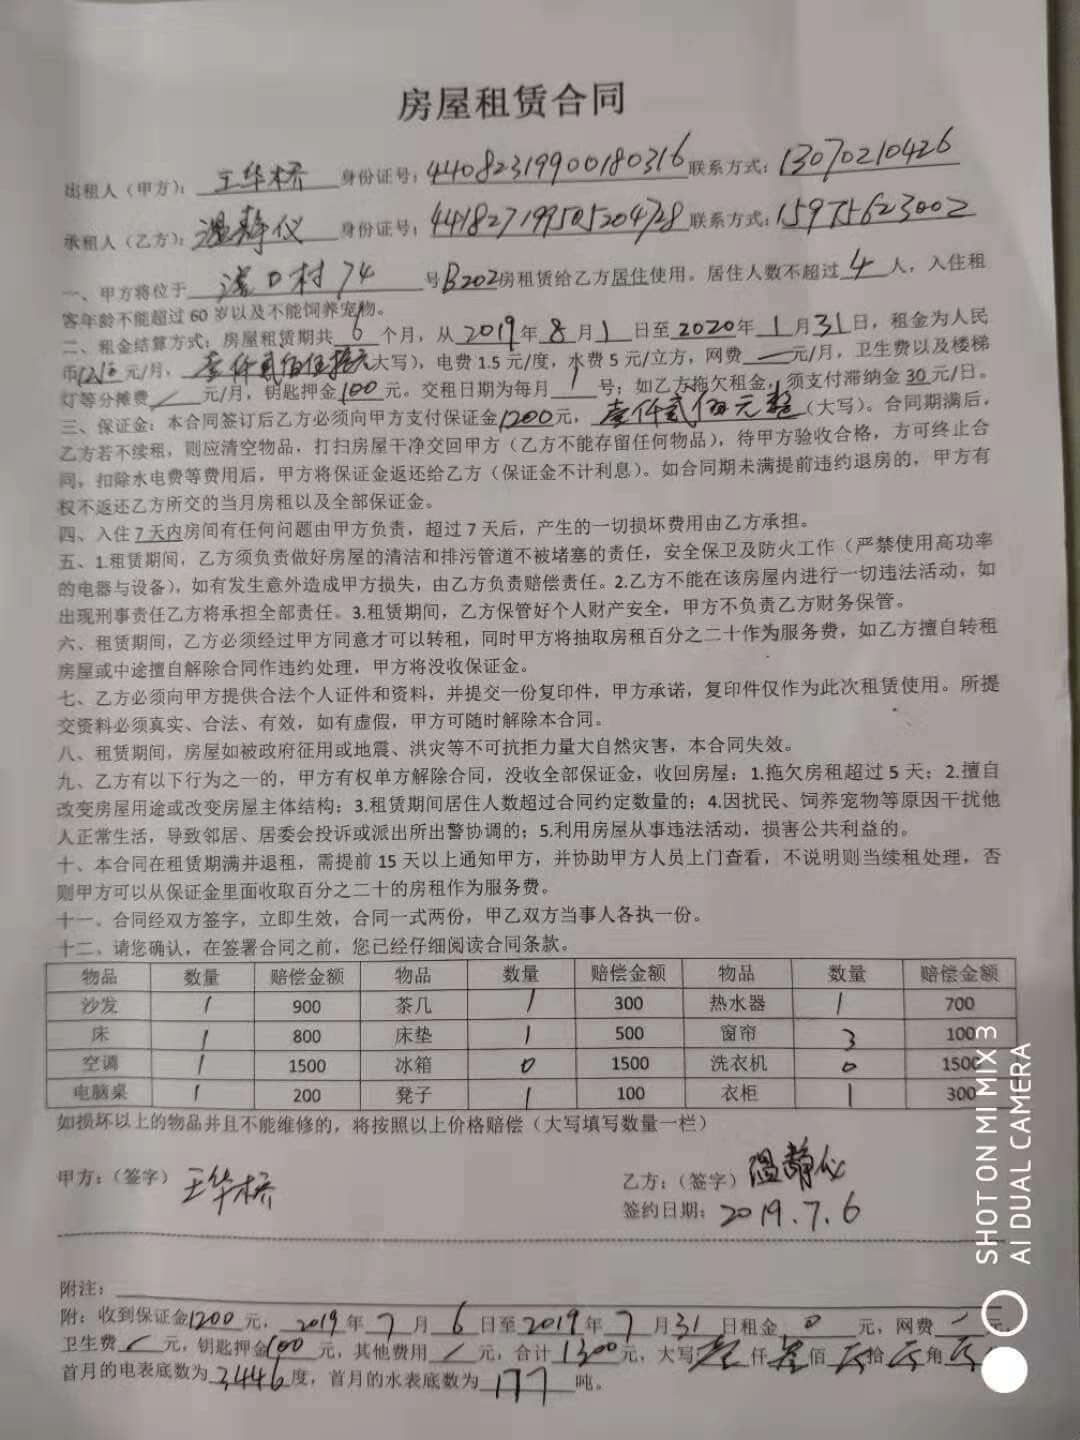 房屋租赁合同
出租人（甲方）：王华桥 身份证号：44082319900180316 联系方式：13070210426
承租人（乙方）：温静仪 身份证号：441827199505204728 联系方式：15975623002
一、甲方将位于 村74 号B202房租赁给乙方居住使用。居住人数不超过 4 人，入住租
客年龄不能超过 60 岁以及不能饲养宠物。
二、租金结算方式：房屋租赁期共 6 个月，从 2019年 8月1日至 2020年 1月31日，租金为人民
币 元/月， 壹仟贰佰 大写），电费 1.5 元/度，水费 5 元/立方，网费 一 元/月，卫生费以及楼梯
灯等分摊费 / 元/月，钥匙押金100 元。交租日期为每月 1 号；如乙方拖欠租金，须支付滞纳金 30 元/日。
三、保证金：本合同签订后乙方必须向甲方支付保证金1200元， 壹仟贰佰元整（大写）。合同期满后，
乙方若不续租，则应清空物品，打扫房屋干净交回甲方（乙方不能存留任何物品），待甲方验收合格，方可终止合
同，扣除水电费等费用后，甲方将保证金返还给乙方（保证金不计利息）。如合同期未满提前违约退房的，甲方有
权不返还乙方所交的当月房租以及全部保证金。
四、入住 7 天内房间有任何问题由甲方负责，超过 7 天后，产生的一切损坏费用由乙方承担。
五、1.租赁期间，乙方须负责做好房屋的清洁和排污管道不被堵塞的责任，安全保卫及防火工作（严禁使用高功率
的电器与设备），如有发生意外造成甲方损失，由乙方负责赔偿责任。2.乙方不能在该房屋内进行一切违法活动，如
出现刑事责任乙方将承担全部责任。3.租赁期间，乙方保管好个人财产安全，甲方不负责乙方财务保管。
六、租赁期间，乙方必须经过甲方同意才可以转租，同时甲方将抽取房租百分之二十作为服务费，如乙方擅自转租
房屋或中途擅自解除合同作违约处理，甲方将没收保证金。
七、乙方必须向甲方提供合法个人证件和资料，并提交一份复印件，甲方承诺，复印件仅作为此次租赁使用。所提
交资料必须真实、合法、有效，如有虚假，甲方可随时解除本合同。
八、租赁期间，房屋如被政府征用或地震、洪灾等不可抗拒力量大自然灾害，本合同失效。
九、乙方有以下行为之一的，甲方有权单方解除合同，没收全部保证金，收回房屋：1.拖欠房租超过 5 天；2.擅自
改变房屋用途或改变房屋主体结构；3.租赁期间居住人数超过合同约定数量的；4.因扰民、饲养宠物等原因干扰他
人正常生活，导致邻居、居委会投诉或派出所出警协调的；5.利用房屋从事违法活动，损害公共利益的。
十、本合同在租赁期满并退租，需提前 15 天以上通知甲方，并协助甲方人员上门查看，不说明则当续租处理，否
则甲方可以从保证金里面收取百分之二十的房租作为服务费。
十一、合同经双方签字，立即生效，合同一式两份，甲乙双方当事人各执一份。
十二、请您确认，在签署合同之前，您已经仔细阅读合同条款。
物品 数量 赔偿金额 物品 数量 赔偿金额 物品 数量 赔偿金额
沙发 1 900 茶几 1 300 热水器 1 700
床 1 800 床垫 1 500 窗帘 3 100
空调 1 1500 冰箱 0 1500 洗衣机 0 1500
电脑桌 1 200 凳子 1 100 衣柜 1 300
如损坏以上的物品并且不能维修的，将按照以上价格赔偿（大写填写数量一栏）
甲方：（签字）王华桥 乙方：（签字）温静仪
签约日期：2019.7.6
附注：
附：收到保证金1200 元， 2019年 7月 6日至2019年 7月31日租金 0 元，网费 / 元，
卫生费 / 元，钥匙押金100 元，其他费用 / 元，合计1300元，大写壹仟叁佰 拾 角
首月的电表底数为 3446度，首月的水表底数为 177 吨。
SHOT ON MI MIX 3
AI DUAL CAMERA